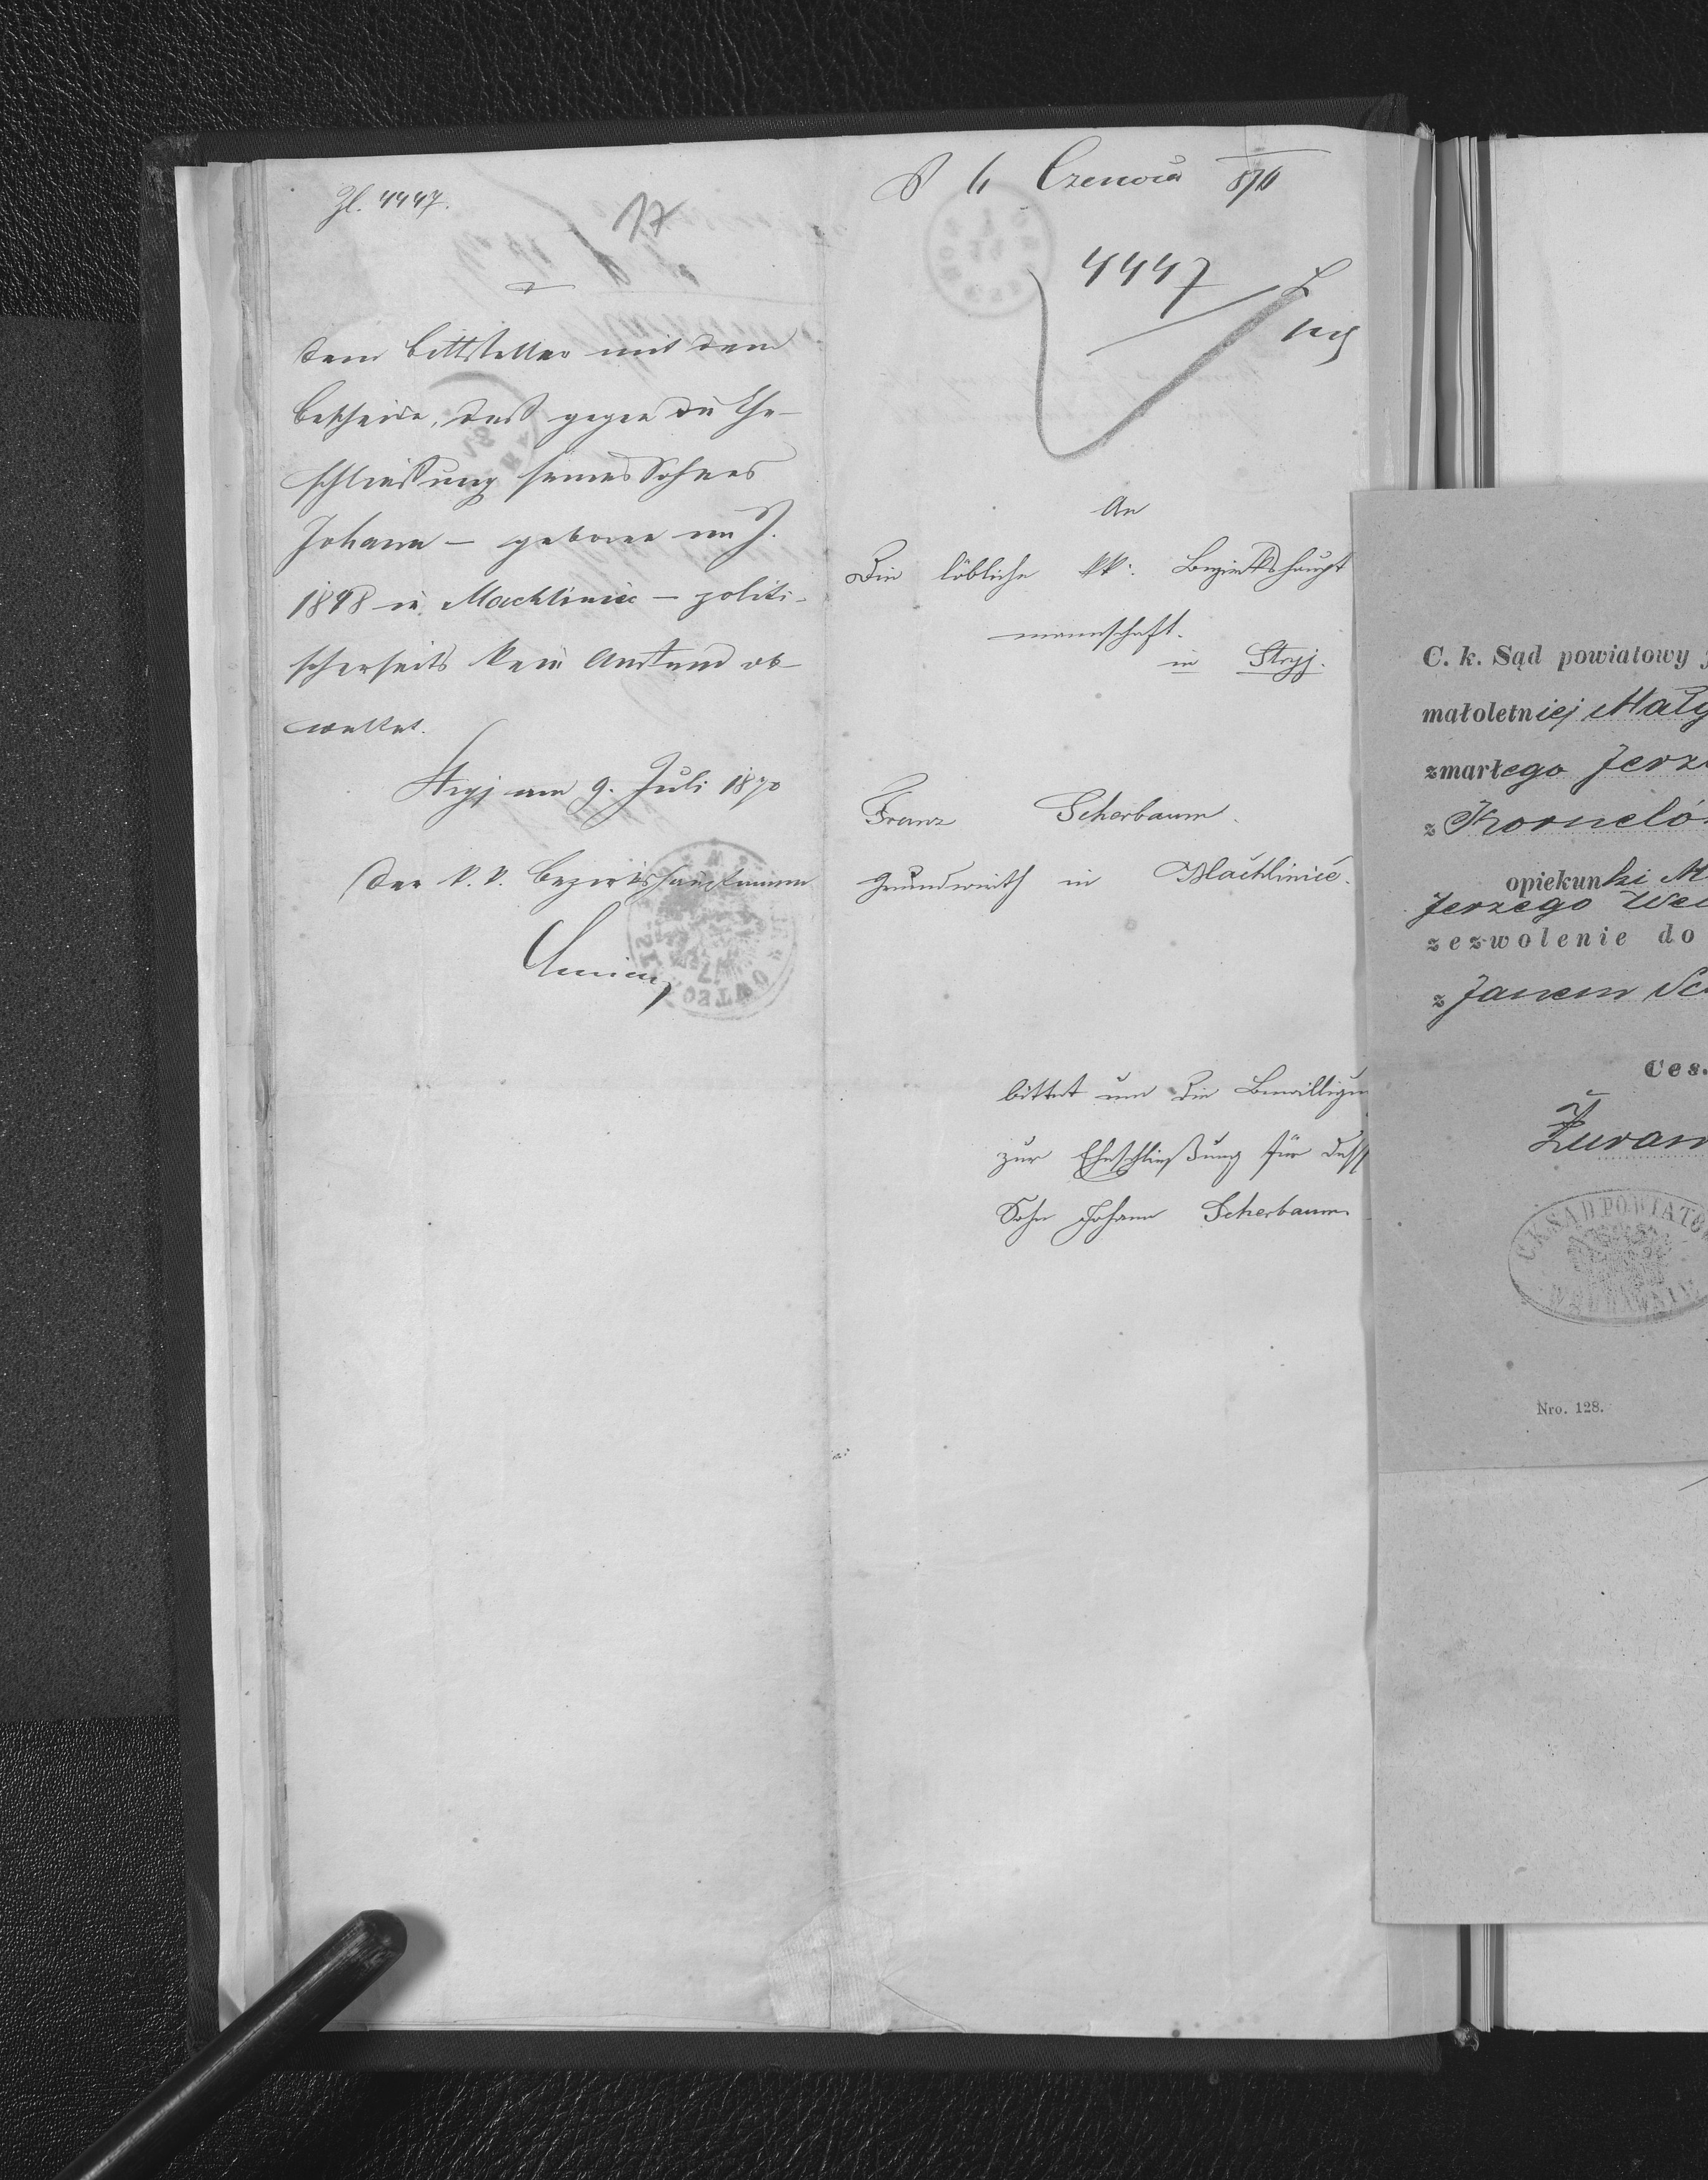 Zl. 4447.
17
Dem Bittsteller mit dem
Bescheide, daß gegen die Ehe-
schließung seines Sohnes
Johann – geboren im J.
1848 in Machliniec – politi-
scherseits kein Anstand ob-
waltet.
Stryj am 9. Juli 1870
Der k. k. Bezirkshauptmann
4447
An
Die löbliche kk: Bezirkshaupt
mannschaft.
in Stryj.
Franz Scherbaum.
Grundwirth in Machliniec.
bittet um die Bewilligun
zur Eheschließung für dess
Sohn Johann Scherbaum
C. k. Sąd powiatowy
małoletniej Mały
zmarłego Jerz
z Korneló
opiekunki M
Jerzego We
zezwolenie do
z Janem Sc
Ces.
Żuraw
C.K.SĄD POWIATO
Nro. 128.